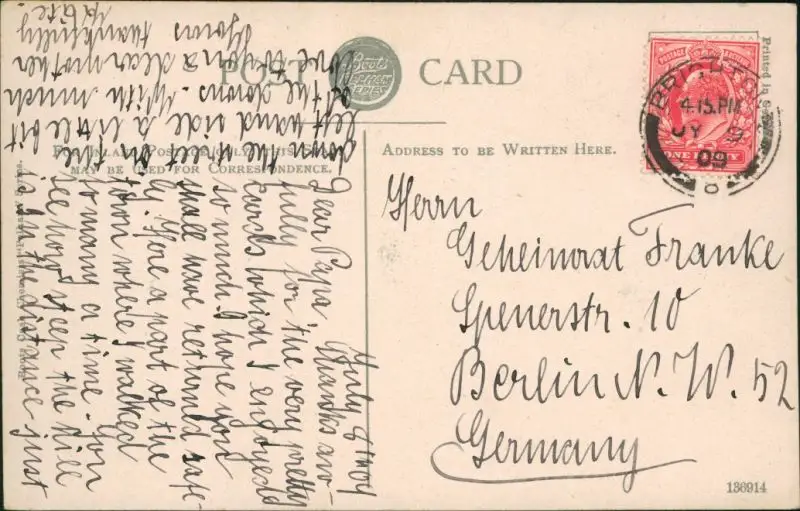 POST CARD
Boots
PELHAM
SERIES
FOR INLAND POSTAGE ONLY THIS SPACE
MAY BE USED FOR CORRESPONDENCE.
ADDRESS TO BE WRITTEN HERE.
July 8th 09
Dear Papa Thanks aw-
fully for the very pretty
cards which I enjoyed
so much. I hope you
shall have returned safe-
ly. Here a part of the
town where I walked
so many a time. You
see how steep the hill
is. In the distance just
down the street on the
left hand side a little bit
of the downs. With much
love to you a dear mother
Yours
thankfully
Käte.
Herrn
Geheimrat Franke
Spenerstr. 10
Berlin N.W. 52
Germany
POSTAGE REVENUE
ONE PENNY
BRIGHTON
4.15.PM
JY 9
09
8
Printed in
136914